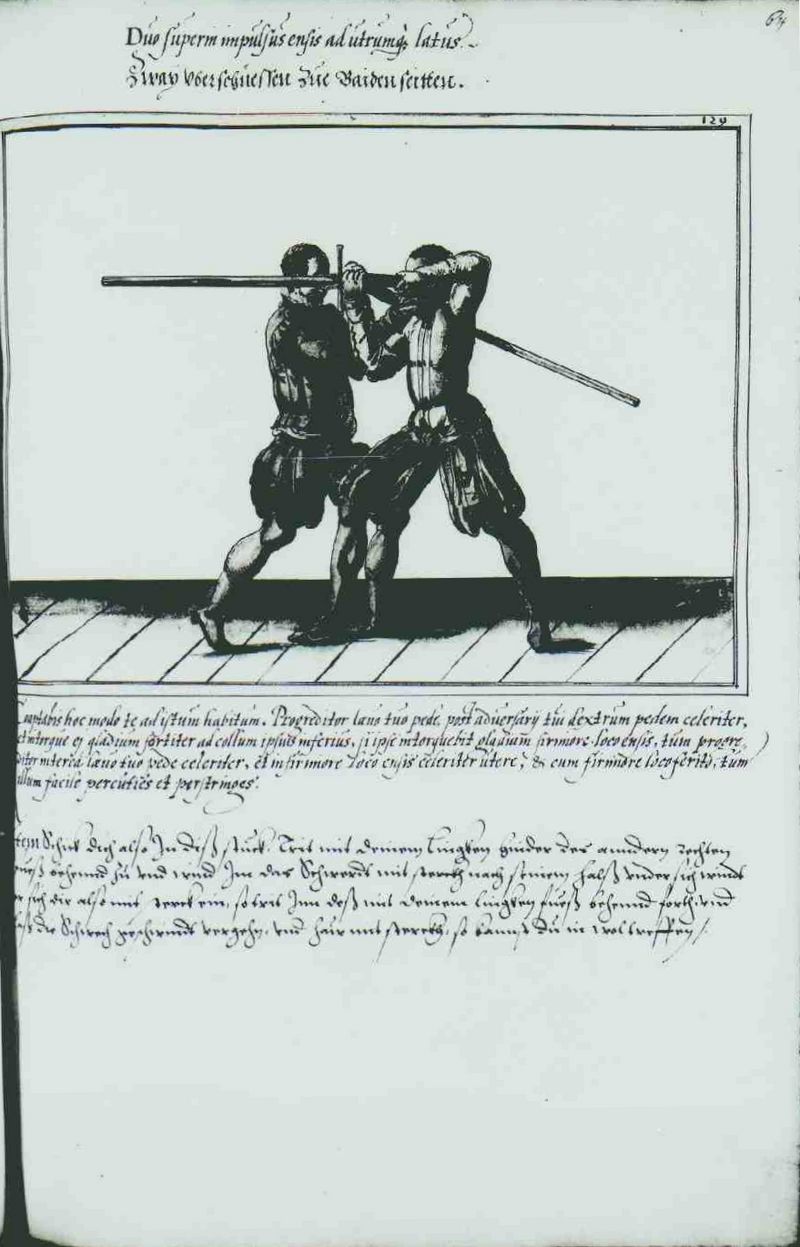 64
Duo superni impulsus ensis ad utrumq; latus.
Zway Vberschiessen Zue Baiden seitten.
129
hoc modo te ad istum habitum. Progreditor laeuo tuo pede, post adversarij tui dextrum pedem celeriter,
et intorque ej gladium fortiter ad collum ipsius inferius, si ipse intorquebit gladium firmiore loco ensis, tum progre-
ditor interea laeuo tuo pede celeriter, et infirmiore loco ensis celeriter utere, & cum firmiore loco ferito, tum
illum facile percuties et perstringes.
Schick dich also In deß stuck. Trit mit deinem Lingken hinder des anndern rechten
behennd zu vnd wind Im das Schwerdt mit sterckh nach seinem halß vnder sich windt
sich dir also mit sterck ein, so trit Inn deß mit deinem lingken fueß behennd forth, vnd
die Schwech geschwindt vergehn, vnd haw mit sterckh, so kannst du in wol treffen.